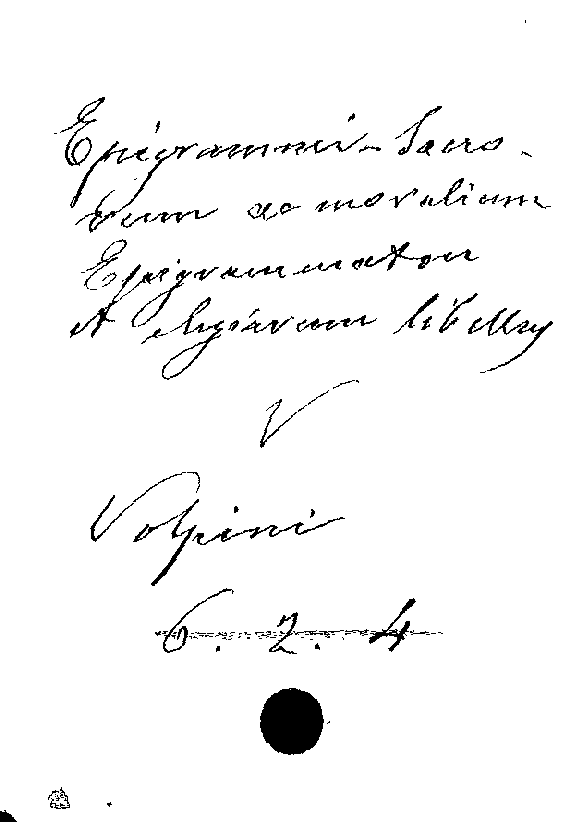 Epigrammi - Sacro-
rum ac moralium
Epigrammaton
et elegiarum libellus
V
Volpini
6. 2. 4